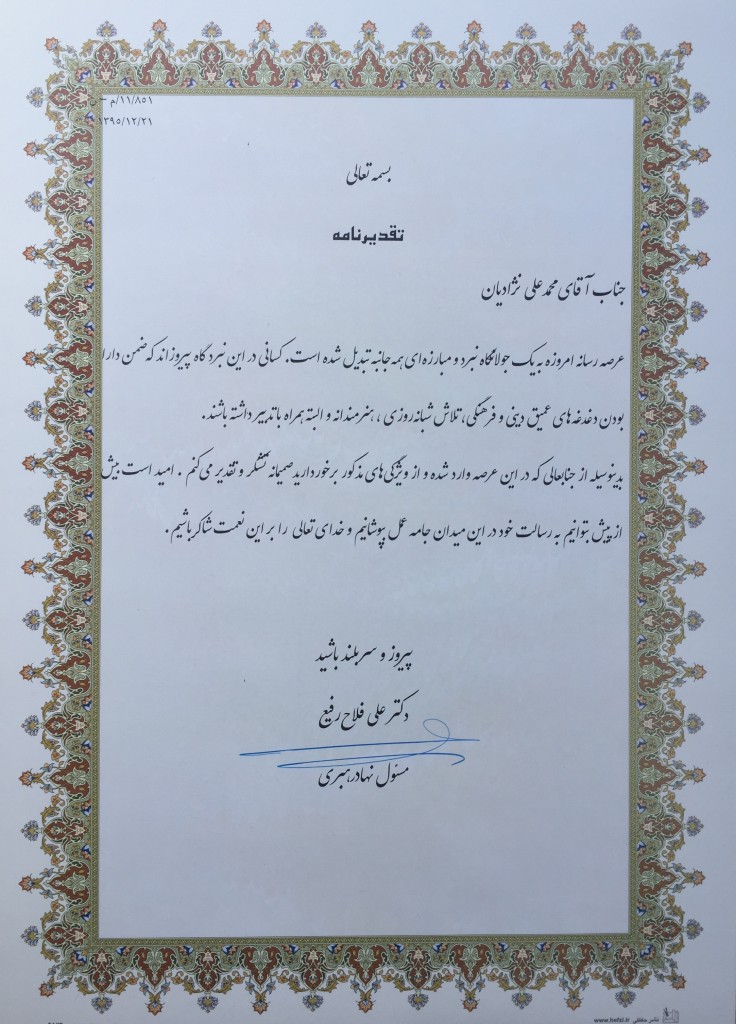 ۱۱/۸۵۱/م –
۱۳۹۵/۱۲/۲۱
بسمه تعالی
تقدیرنامه
جناب آقای محمد علی نژادیان
عرصه رسانه امروزه به یک جولانگاه نبرد و مبارزه ای همه جانبه تبدیل شده است. کسانی در این نبرد گاه پیروزاند که ضمن دارا
بودن دغدغه های عمیق دینی و فرهنگی، تلاش شبانه روزی ، هنرمندانه و البته همراه با تدبیر داشته باشند.
بدینوسیله از جنابعالی که در این عرصه وارد شده و از ویژگی های مذکور برخوردارید صمیمانه تشکر و تقدیر می کنم . امید است بیش
از پیش بتوانیم به رسالت خود در این میدان جامه عمل بپوشانیم و خدای تعالی را بر این نعمت شاکر باشیم .
پیروز و سربلند باشید
دکتر علی فلاح رفیع
مسئول نهاد رهبری
www.hefzi.ir